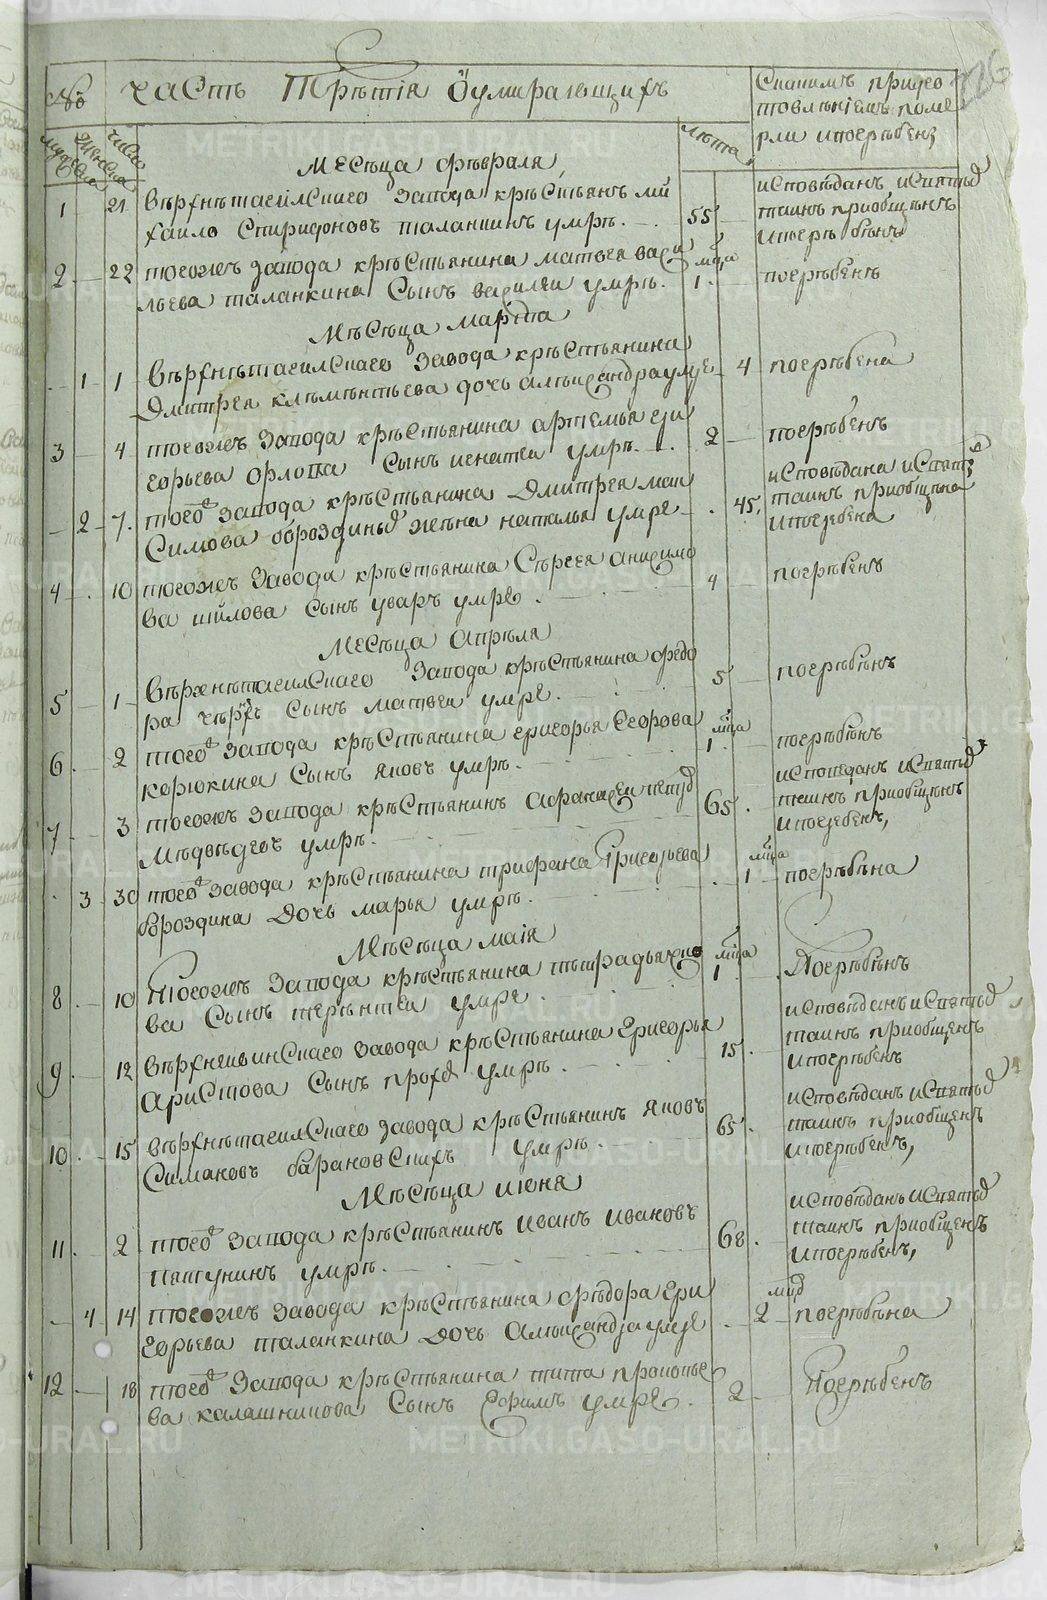 №
часть Трѣтія Оумирающихъ
Скакимъ приуго
товлѣніемъ поме
рли ипогрѣбены
226
мужеска
женска
число
лѣта
Месѣца февраля
1 21 Вѣрхнѣтагилскаго завода крѣстьянъ ми
хаило Спиридоновъ таланкинъ умрѣ. 55
исповѣданъ исвятыхъ
таинъ приобщѣнъ
ипогрѣбѣнъ
2 22 тогожъ завода крѣстьянина матвея васи
льева таланкина Сынъ василеи умрѣ. мца 1. погрѣбенъ
Мѣсѣца марѳта
1 1 Вѣрхнѣтагилскаго завода крѣстьянина
Дмитрея клѣмѣнтьева дочь алѣѯандра умре 4 погрѣбена
3 4 тогожъ завода крѣстьянина артемья гри
горьева орлова Сынъ игнатеи умрѣ. 2 погрѣбенъ
2 7. тогоже завода крѣстьянина Дмитрея мак
Симова бороздиныхъ жѣна наталья умре 45.
исповѣдана исвятыхъ
таинъ приобщѣна
ипогребена
4 10 тогожъ завода крѣстьянина Сѣргея анисимо
ва шилова Сынъ уваръ умре. 4 погрѣбенъ
Месѣца Апрѣля
5 1 Вѣрхнѣтагилскаго завода крѣстьянина федо
ра Сынъ матвеи умре. 5 погрѣбѣнъ
6 2 тогоже завода крѣстьянина григорья Егорова
корюкина Сынъ яковъ умрѣ. мца 1 погрѣбѣнъ
7 3 тогожъ завода крѣстьянинъ
Мѣдвѣдевъ умрѣ. 65.
исповеданъ исвятыхъ
таинъ приобщѣнъ
ипогребенъ,
3 30 тогоже завода крѣстьянина трифана Григорьева
бороздина Дочь марья умрѣ. мца 1 погрѣбѣна
Мѣсѣца маія
8 10 Тогожъ завода крѣстьянина
ва Сынъ терѣнтеи умре. мца 1 Погрѣбѣнъ
9 12 Вѣрхнеивинскаго завода крѣстьянина Григорья
Аристова Сынъ прохоръ умрѣ. 15
исповѣданъ исвятыхъ
таинъ приобщенъ
ипогрѣбенъ
10 15 Вѣрхнѣтагилскаго завода крѣстьянинъ яковъ
Симановъ барановскихъ умрѣ. 65.
исповѣданъ исвятыхъ
таинъ приобщенъ
ипогрѣбенъ,
Мѣсѣца июня
11 2 тогоже завода крѣстьянинъ иванъ ивановъ
пятунинъ умрѣ. 68.
исповѣданъ исвятыхъ
таинъ приобщенъ
ипогрѣбенъ,
4 14 тогожъ завода крѣстьянина фѣдора гри
горьева таланкина Дочь Алѣѯандра умре 2 погрѣбѣна
12 18 тогоже завода крѣстьянина тита прокопье
ва калашникова Сынъ Ефимъ умре. 2 Погрѣбенъ
METRIKI.GASO-URAL.RU